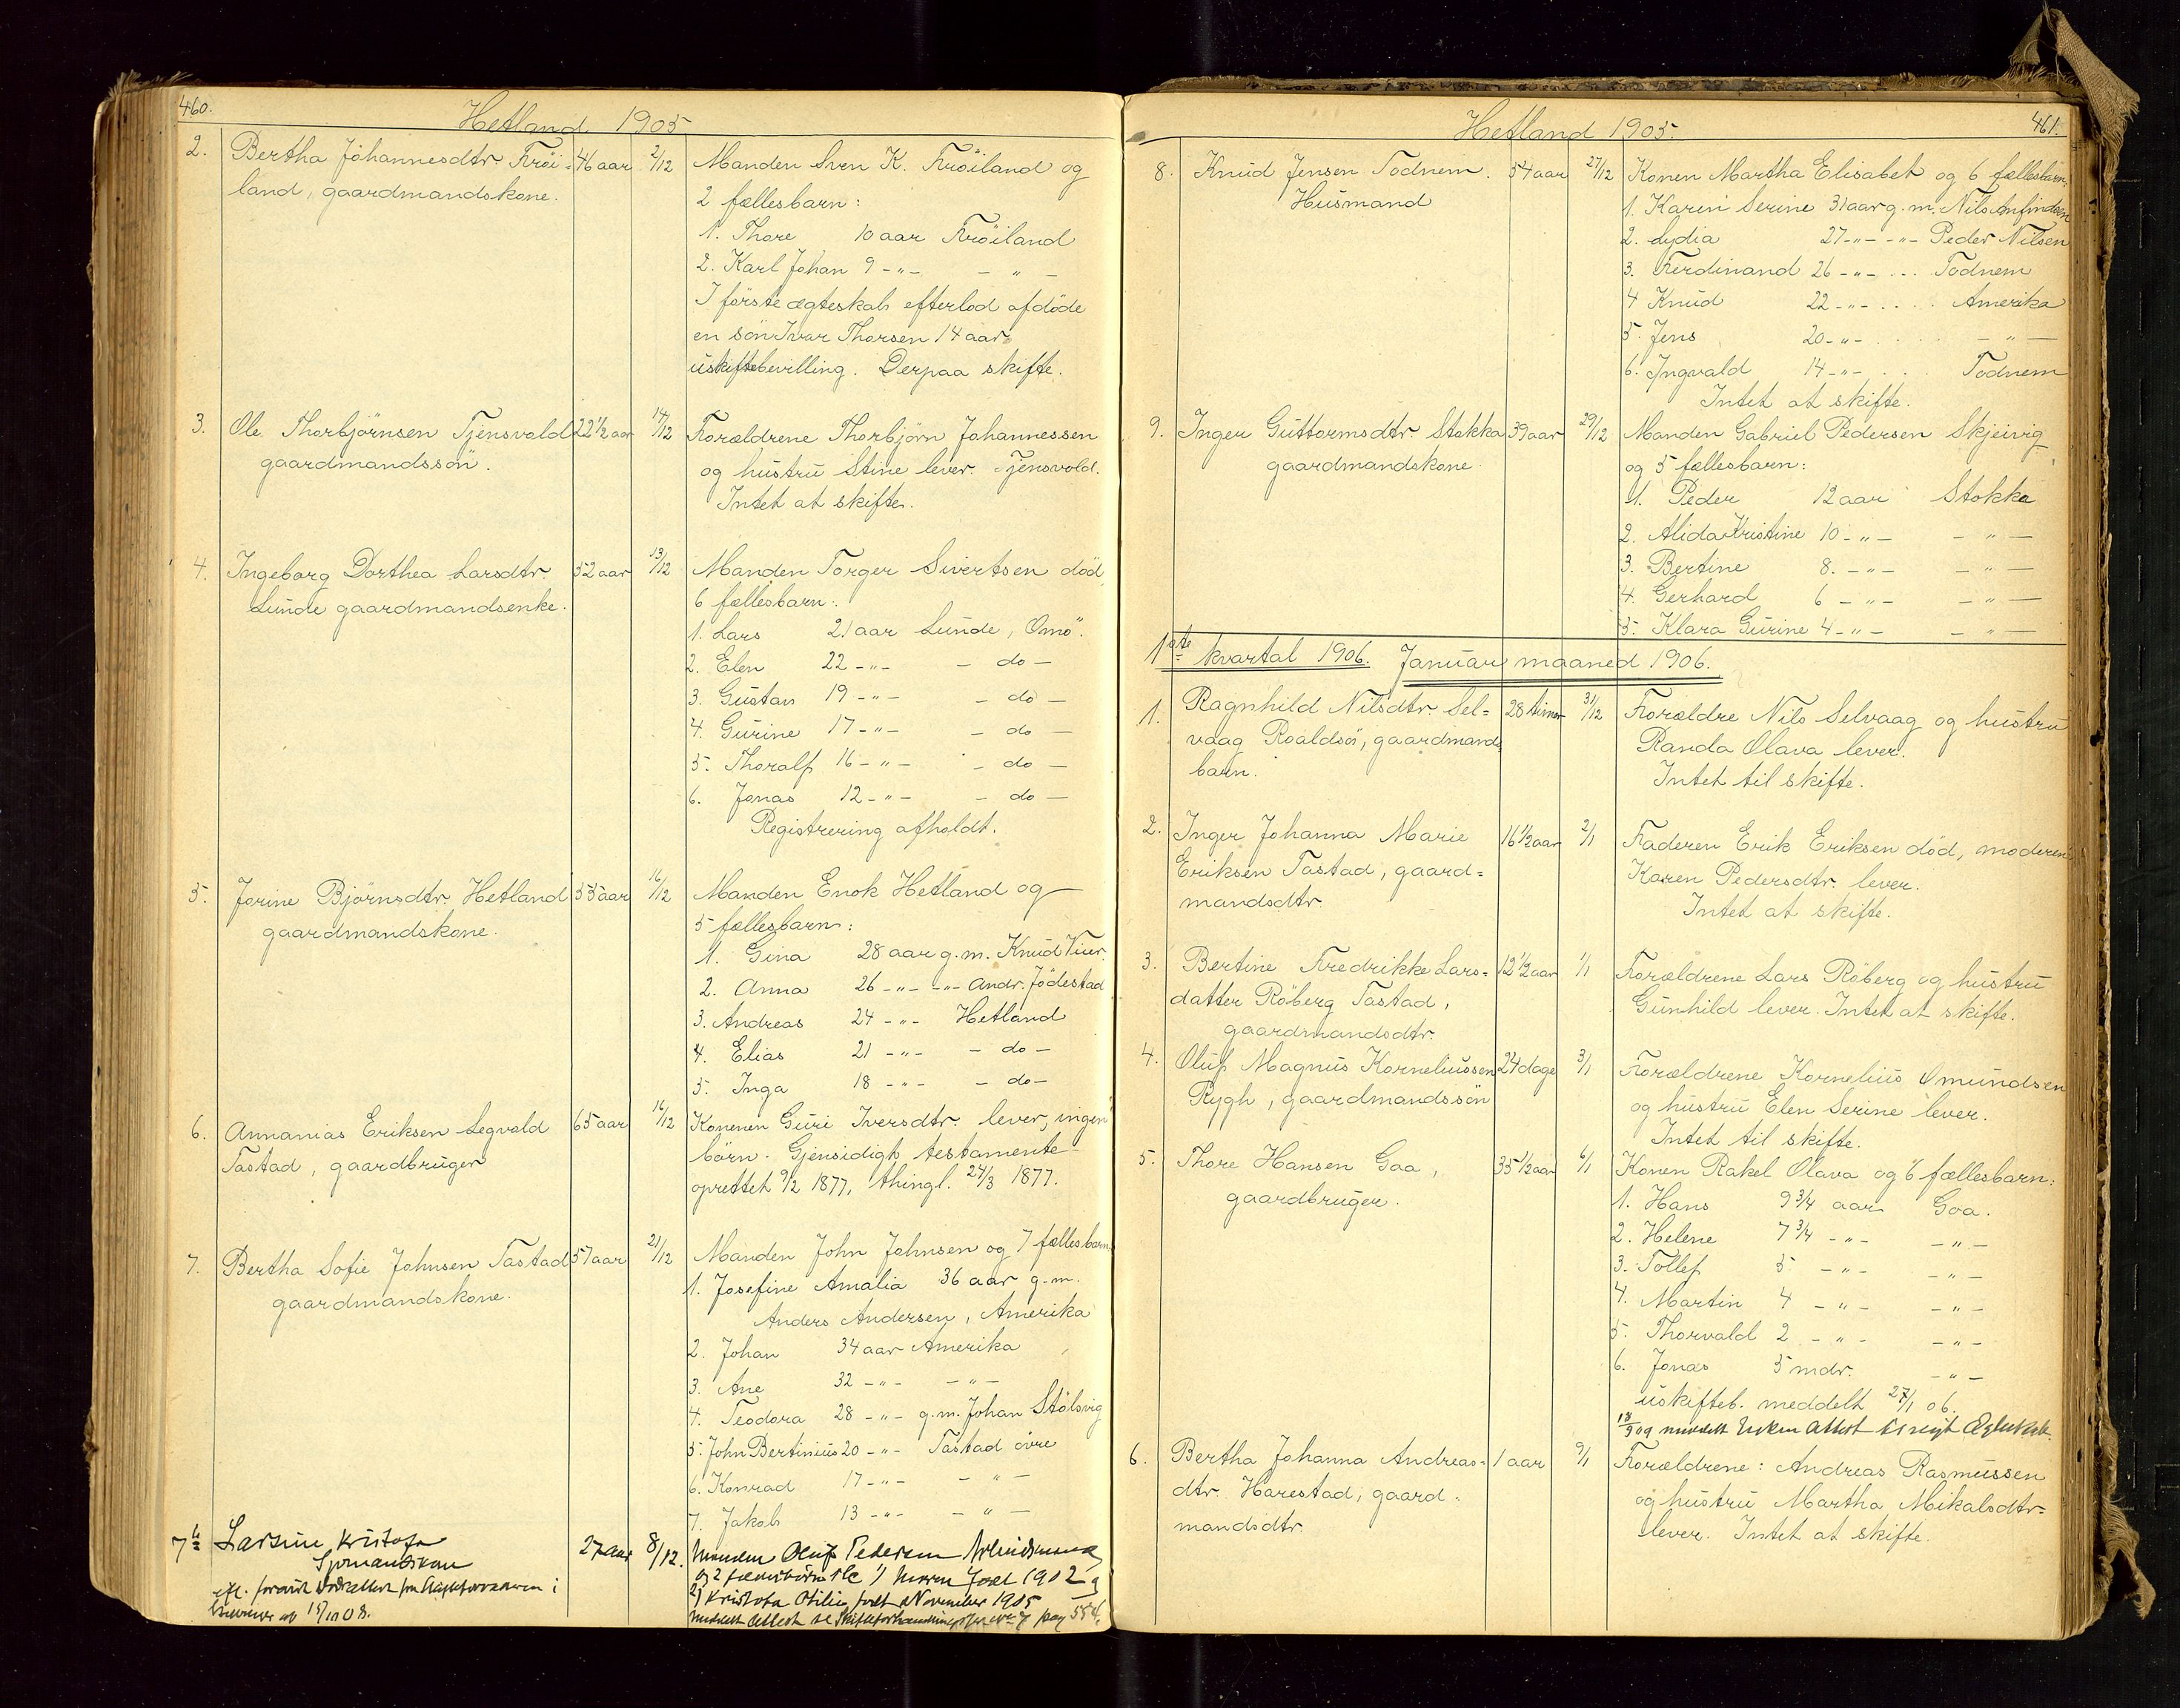 460.
Hetland 1905
2. Bertha Johannesdtr Fröi- 46 aar 2/12
land, gaardmandskone.
Manden Sven K. Fröiland og
2 fællesbarn:
1. Thore 10 aar Fröiland
2. Karl Johan 9 -"- - " -
I förste ægteskab efterlod afdöde
en sön Ivar Thorsen 14 aar
uskiftebevilling. Derpaa skifte.
3. Ole Thorbjörnsen Tjensvold 22 1/2 aar 14/12
gaardmandssön.
Forældrene Thorbjörn Johannessen
og hustru Stine lever Tjensvold.
Intet at skifte.
4. Ingeborg Dorthea Larsdtr. 52 aar 13/12
Lunde gaardmandsenke.
Manden Torger Sivertsen död
6 fællesbarn:
1. Lars 21 aar Lunde, Omö.
2. Elen 22 -"- - do -
3. Gustav 19 -"- - do -
4. Gurine 17 -"- - do -
5. Thoralf 16 -"- - do -
6. Jonas 12 -"- - do -
Registrering afholdt.
5. Jorine Björnsdtr. Hetland 55 aar 16/12
gaardmandskone.
Manden Enok Hetland og
5 fællesbarn:
1. Gina 28 aar g. m. Knud Vier
2. Anna 26 -"- -"- Andr. Jödestad
3. Andreas 24 -"- Hetland
4. Elias 21 -"- - do -
5. Inga 18 -"- - do -
6. Annanias Eriksen Legvold 65 aar 16/12
Tastad, gaardbruger
Konenen Guri Iversdtr. lever, ingen
börn. Gjensidigh testamente
oprettet 9/2 1877, thingl. 24/3 1877.
7. Bertha Sofie Johnsen Tastad 57 aar 21/12
gaardmandskone.
Manden John Johnsen og 7 fællesbarn
1. Josefine Amalia 36 aar g. m.
Anders Andersen, Amerika
2. Johan 34 aar Amerika
3. Ane 32 -"- - " -
4. Teodora 28 -"- g. m. Johan Stölsvig
5. John Bertinius 20 -"- Tastad övre
6. Konrad 17 -"- - " -
7. Jakob 13 -"- - " -
7b Larsine Kristofa 27 aar 8/12.
Manden Oluf Pedersen
1902
2) Kristofa Otilie födt November 1905
meddelt Attest pag 554.
461.
Hetland 1905.
8. Knud Jensen Todnem. 54 aar 27/12
Husmand
Konen Martha Elisabet og 6 fællesbarn:
1. Karen Serine 31 aar g. m. Nils Anfindsen
2. Lydia 27 -"- -"- Peder Nilsen
3. Ferdinand 26 -"- ... Todnem
4 Knud 22 -"- .... Amerika
5. Jens 20 -"- .... - " -
6. Ingvald 14 -"- .. Todnem
Intet at skifte.
9. Inger Guttormsdtr. Stokka 39 aar 29/12
gaardmandskone.
Manden Gabriel Pedersen Skjeivig
og 5 fællesbarn:
1. Peder 12 aar Stokka
2. Alida Kristine 10 -"- - " -
3. Bertine 8. -"- - " -
4. Gerhard 6 -"- - " -
5. Klara Gurine 4 -"- - " -
1ste kvartal 1906. Januar maaned 1906.
1. Ragnhild Nilsdtr Sel= 28 timer 31/12
vaag Roaldsö, gaardmands
barn.
Forældre Nils Selvaag og hustru
Randa Olava lever.
Intet til skifte.
2. Inger Johanna Marie 16 1/2 aar 2/1
Eriksen Tastad, gaard=
mandsdtr.
Faderen Erik Eriksen död, moderen
Karen Pedersdtr. lever.
Intet at skifte.
3. Bertine Fredrikke Lars= 12 1/2 aar 1/1
datter Röberg Tastad,
gaardmandsdtr.
Forældrene Lars Röberg og hustru
Gunhild lever. Intet at skifte.
4. Oluf Magnus Korneliussen 24 dage 3/1
Rygh, gaardmandssön
Forældrene Kornelius Omundsen
og hustru Elen Serine lever.
Intet til skifte.
5. Thore Hansen Gaa, 35 1/2 aar 6/1
gaardbruger.
Konen Rakel Olava og 6 fællesbarn:
1. Hans 9 3/4 aar Goa.
2. Helene 7 3/4 -"- -"-
3. Tollef 5 -"- -"-
4. Martin 4 -"- -"-
5. Thorvald 2 -"- -"-
6. Jonas 5 mdr. -"-
uskifteb. meddelt 27/1 06.
18/9 09 meddelt Enken Attest til nyt Ægteskab.
6. Bertha Johanna Andreas= 1 aar 9/1
dtr. Harestad, gaard=
mandsdtr.
Forældrene: Andreas Rasmussen
og hustru Martha Mikalsdtr=
lever. Intet at skifte.